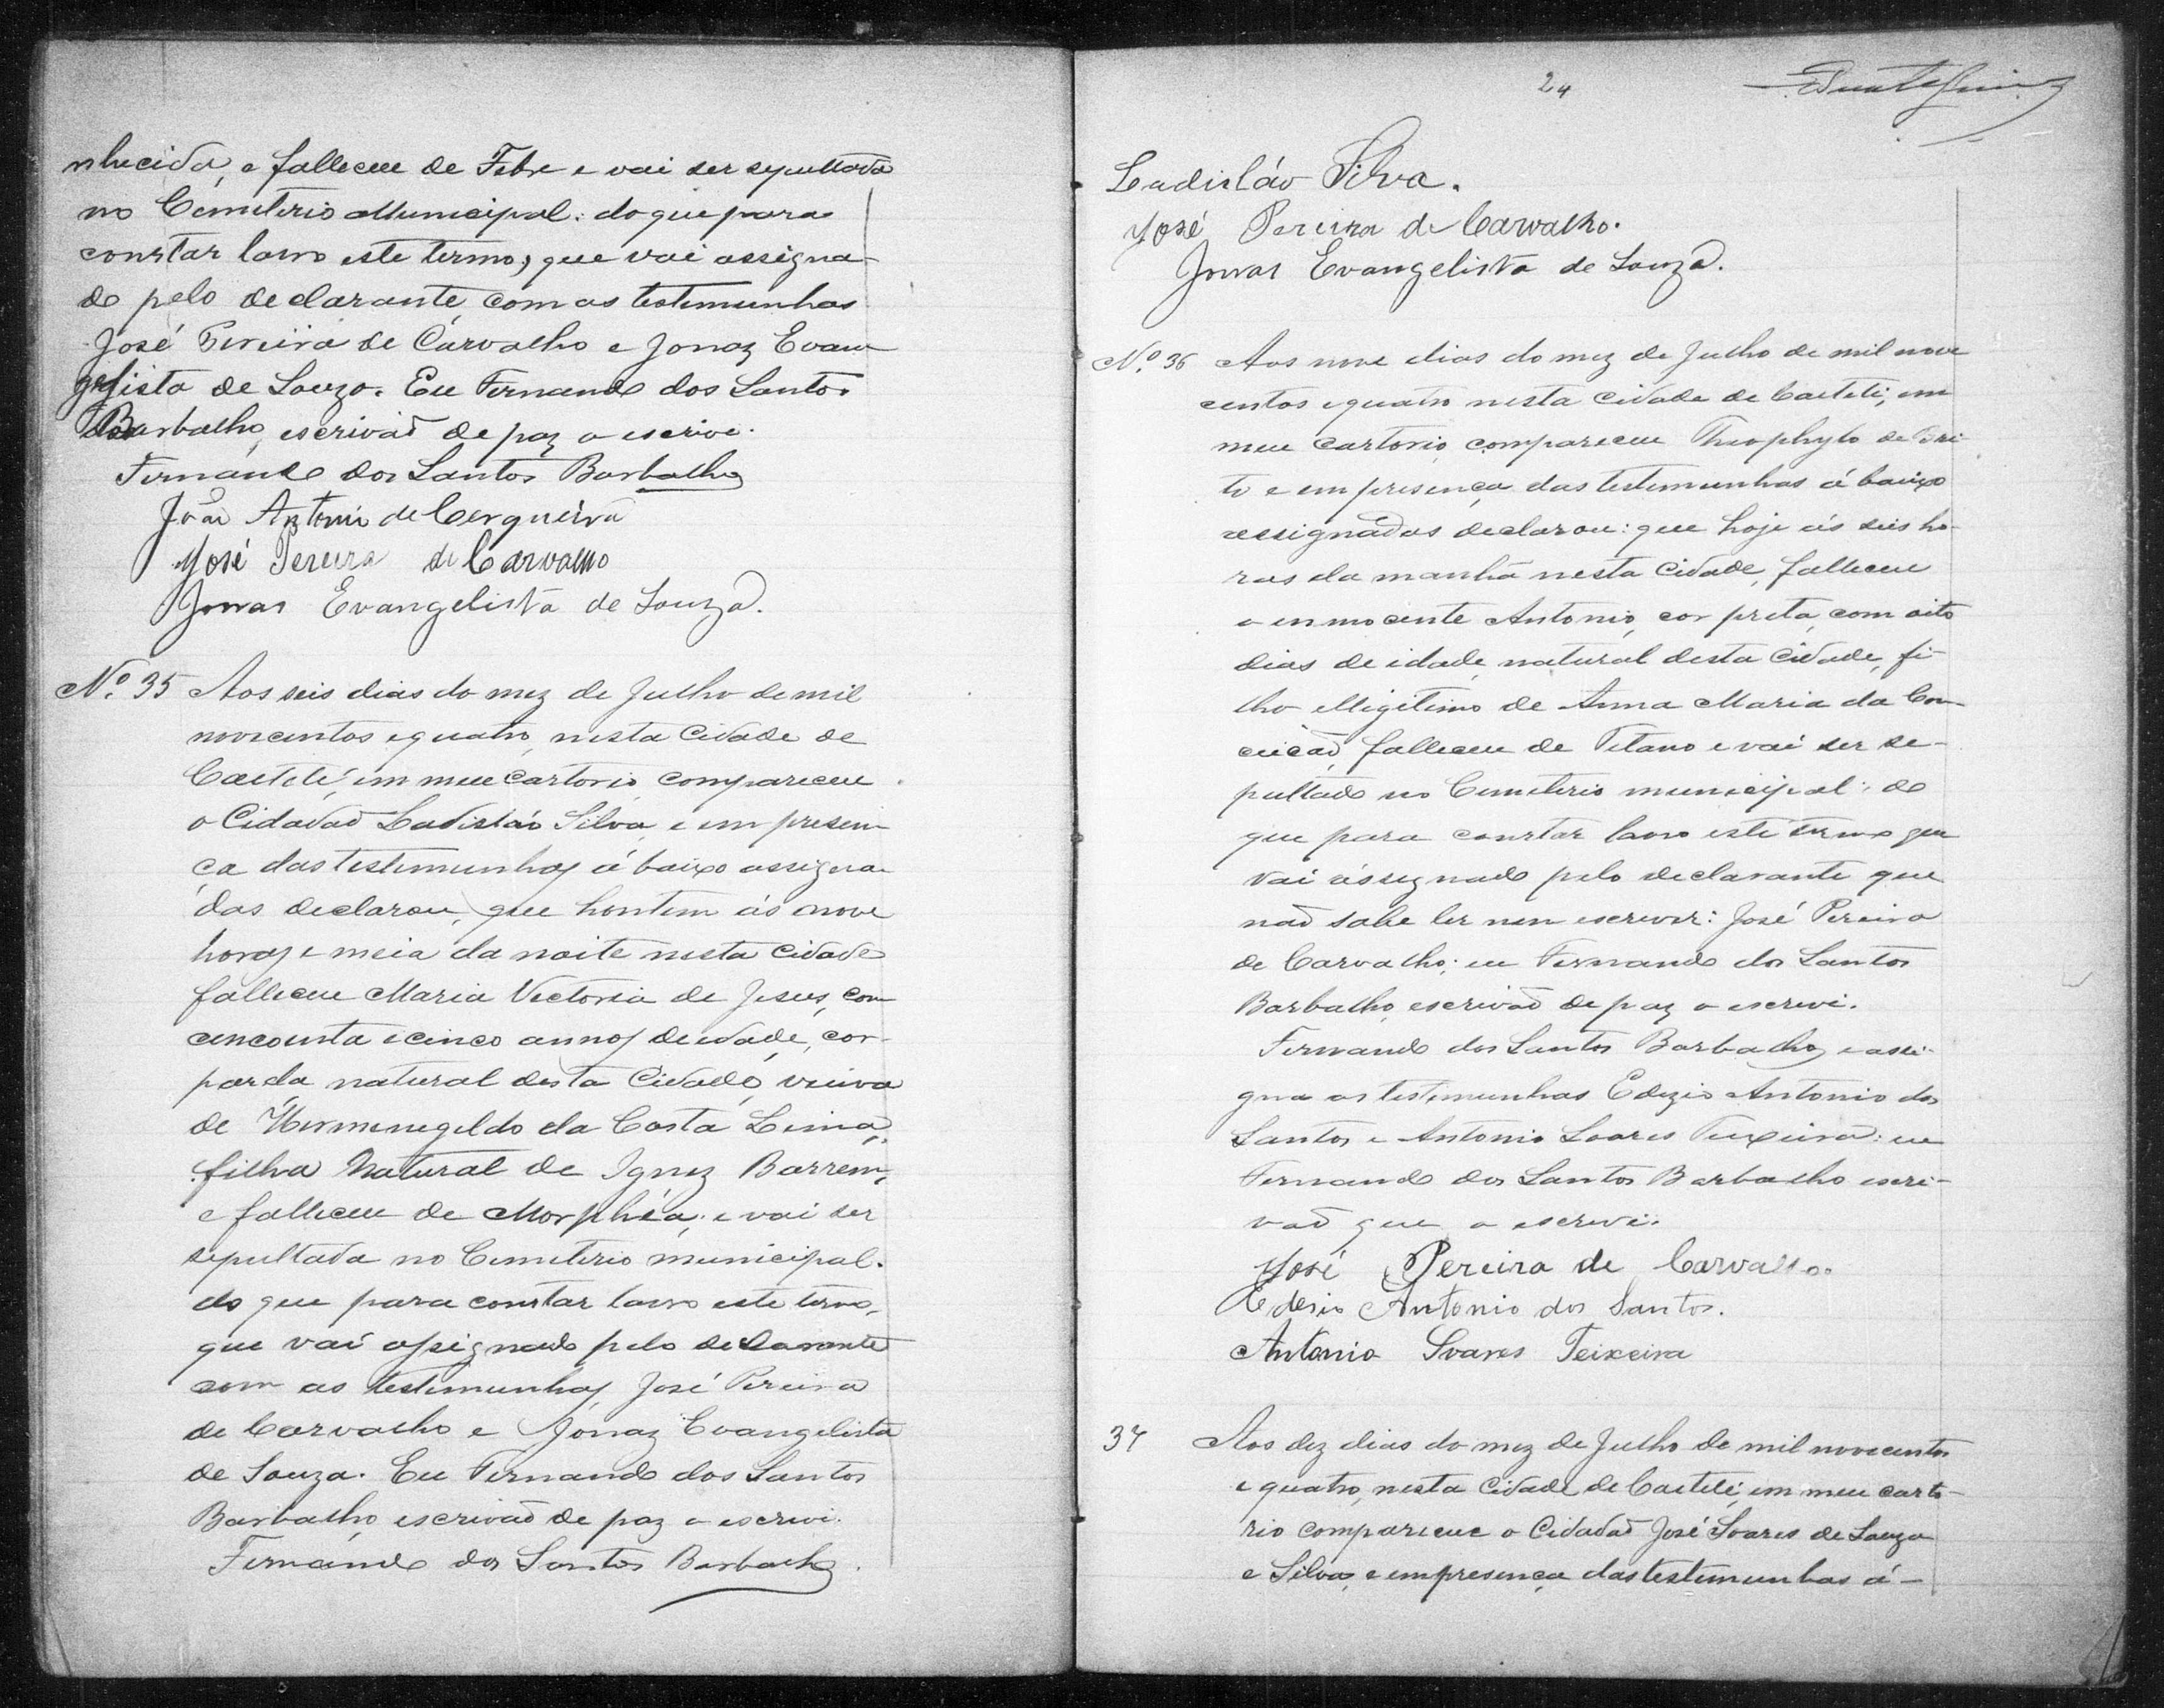 nhecida, e falleceu de Febre e vai ser sepultada
no Cemiterio Municipal: do que para
constar lavro este termo, que vai assigna-
do pelo declarante, com as testimunhas
José Pereira de Carvalho e Jonaz Evan-
gelista de Souza. Eu Fernando dos Santos
Barbalho, escrivaõ de paz o escrive.
Fernando dos Santos Barbalho
João Antonio de Cerqueira
José Pereira de Carvalho
Jonas Evangelista de Souza.
Nº. 35 Aos seis dias do mez de Julho de mil
novecentos e quatro, nesta Cidade de
Caeteté, em meu Cartorio compareceu
o Cidadaõ Ladisláo Silva, e em presen-
ça das testimunhas á baixo assigna-
das declarou, que hontem ás nove
horas e meia da noite nesta Cidade
falleceu Maria Victoria de Jesus, com
cencoenta e cinco annos de idade, cor
parda, natural desta Cidade, viuva
de Hermenegeldo da Costa Lima,
filha Natural de Ignez Barrem,
e falleceu de Morphéa, e vai ser
sepultada no Cemiterio municipal.
do que para constar lavro este termo,
que vai assignado pelo declarante
com as testimunhas José Pereira
de Carvalho e Jonaz Evangelista
de Souza. Eu Fernando dos Santos
Barbalho, escrivaõ de paz o escrevi.
Fernando dos Santos Barbalho.
24
Ladisláo Silva.
José Pereira de Carvalho.
Jonas Evangelista de Souza.
Nº. 36 Aos nove dias do mez de Julho de mil nove
centos e quatro nesta Cidade de Caeteté, em
meu cartorio, compareceu Theophylo de Bri-
to e em presença das testemunhas á baixo
assignadas declarou: que hoje ás seis ho-
ras da manhã nesta Cidade, falleceu
o innocente Antonio, cor preta, com oito
dias de idade, natural desta Cidade, fi-
lho illigitimo de Anna Maria da Con-
ceicaõ, falleceu de Tetano e vai ser se-
pultado no Cemiterio municipal: do
que para constar lavro este termo que
vai assignado pelo declarante que
naõ sabe ler nen escrever: José Pereira
de Carvalho; eu Fernando dos Santos
Barbalho, escrivaõ de paz o escrevi.
Fernando dos Santos Barbalho, e assi-
gna as testemunhas Edezio Antonio dos
Santos e Antonio Soares Teixeira: eu
Fernando dos Santos Barbalho escri-
vaõ que o escrevi.
José Pereira de Carvalho.
Edesio Antonio dos Santos.
Antonio Soares Teixeira
37 Aos dez dias do mez de Julho de mil novecentos
e quatro, nesta Cidade de Caeteté, em meu carto-
rio compareceu o Cidadaõ José Soares de Souza
e Silva, e em presença das testemunhas á-